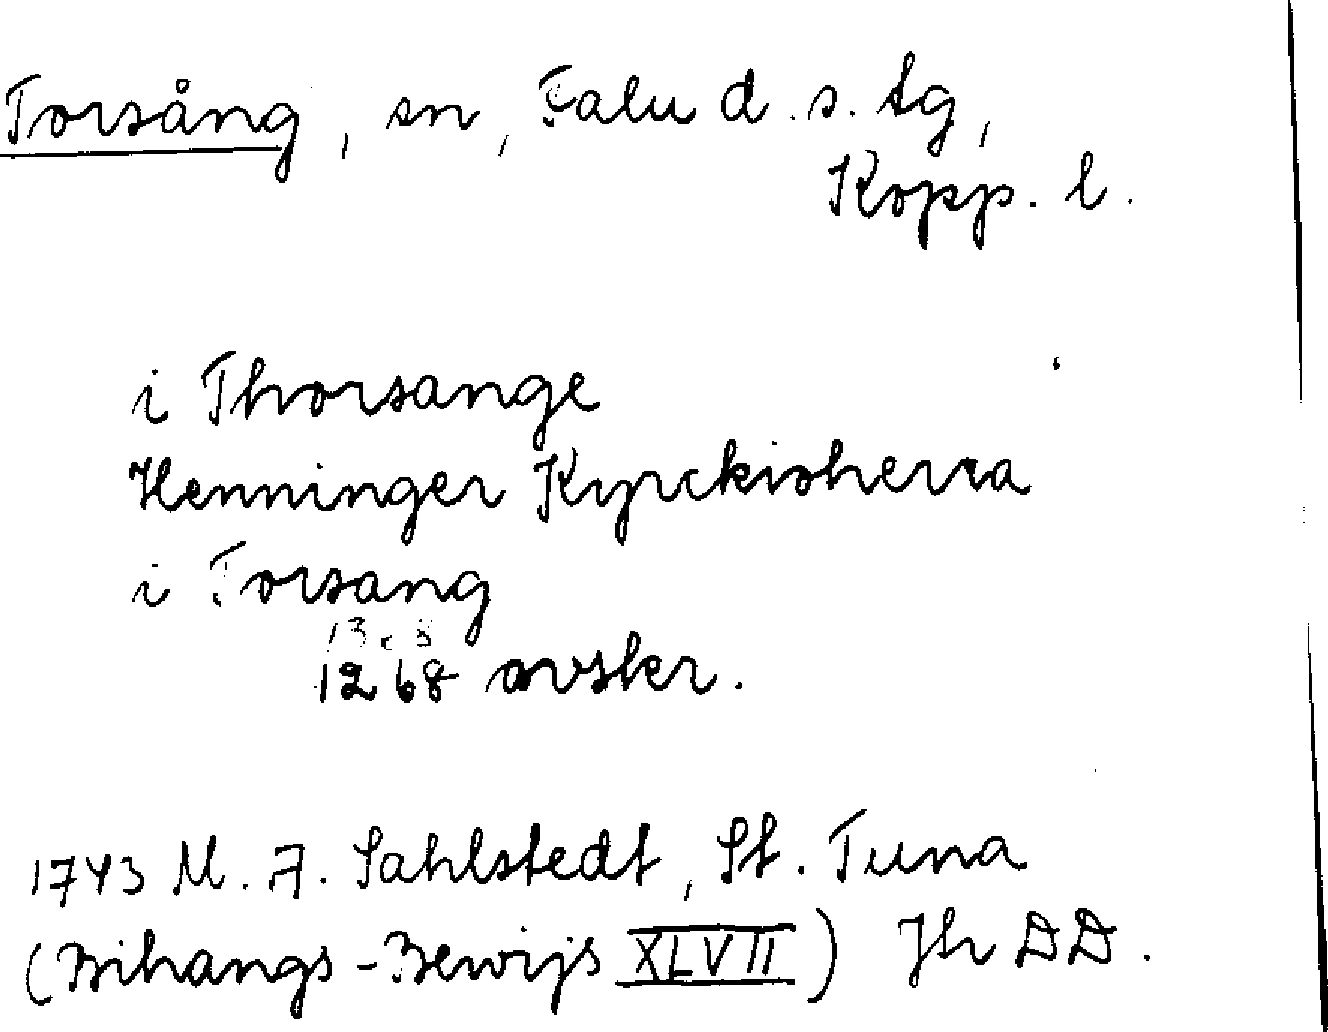 Torsång, sn, Falu d. s. tg,
Kopp. l.
i Thorsange
Henninger Kyrckioherra
i Torsang
1368
1268 avskr.
1743 M. A. Sahlstedt, St. Tuna
(Bihangs-Bewijs XLVII) Jh DD.